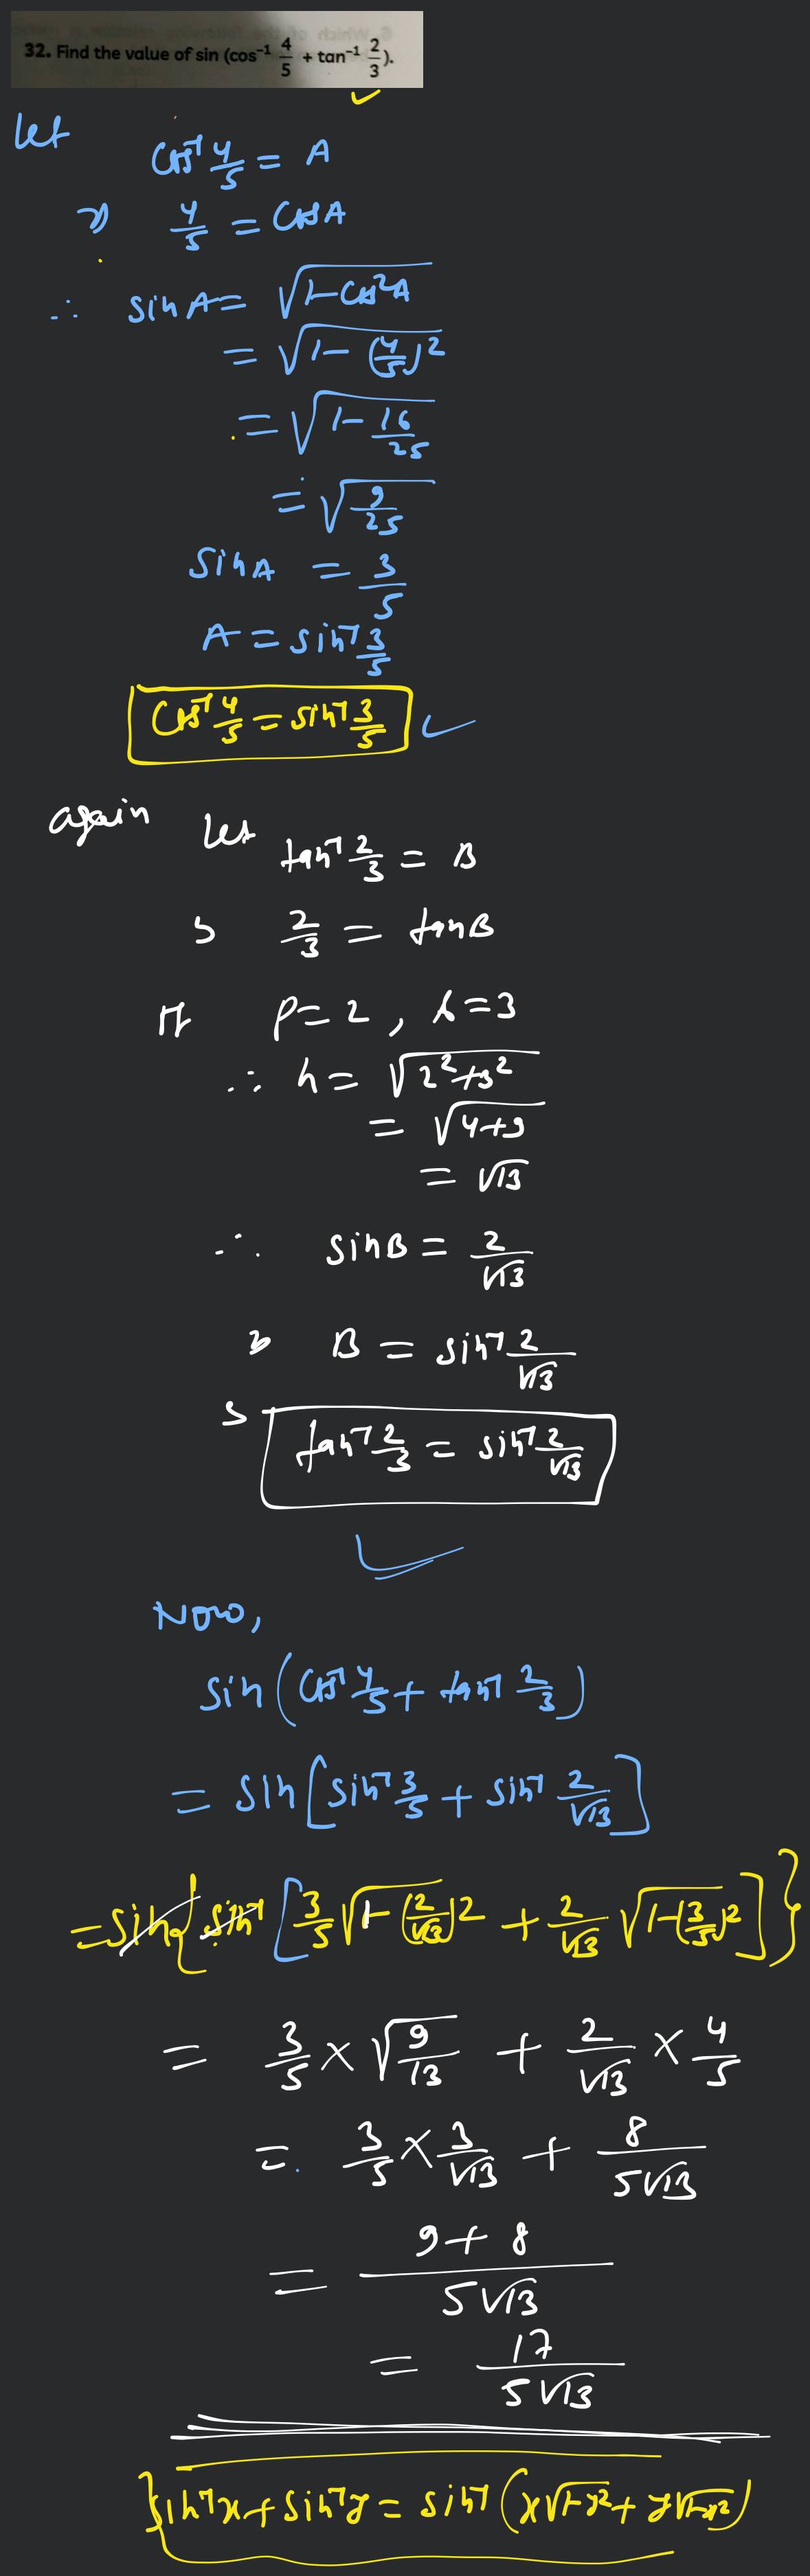 32. Find the value of sin (cos⁻¹ 4/5 + tan⁻¹ 2/3).
let
cos⁻¹ 4/5 = A
⇒ 4/5 = cosA
∴ sinA = √(1-cos²A)
= √(1-(4/5)²)
= √(1-16/25)
= √(9/25)
sinA = 3/5
A = sin⁻¹ 3/5
cos⁻¹ 4/5 = sin⁻¹ 3/5
again let
tan⁻¹ 2/3 = B
2/3 = tanB
p=2, b=3
∴ h = √(2²+3²)
= √(4+9)
= √13
∴ sinB = 2/√13
B = sin⁻¹ 2/√13
tan⁻¹ 2/3 = sin⁻¹ 2/√13
Now,
sin(cos⁻¹ 4/5 + tan⁻¹ 2/3)
= sin[sin⁻¹ 3/5 + sin⁻¹ 2/√13]
= sin{sin⁻¹[3/5 √(1-(2/√13)²) + 2/√13 √(1-(3/5)²)]}
= 3/5 × √(9/13) + 2/√13 × 4/5
= 3/5 × 3/√13 + 8/5√13
= (9+8)/5√13
= 17/5√13
}sin⁻¹x + sin⁻¹y = sin⁻¹(x√(1-y²) + y√(1-x²))